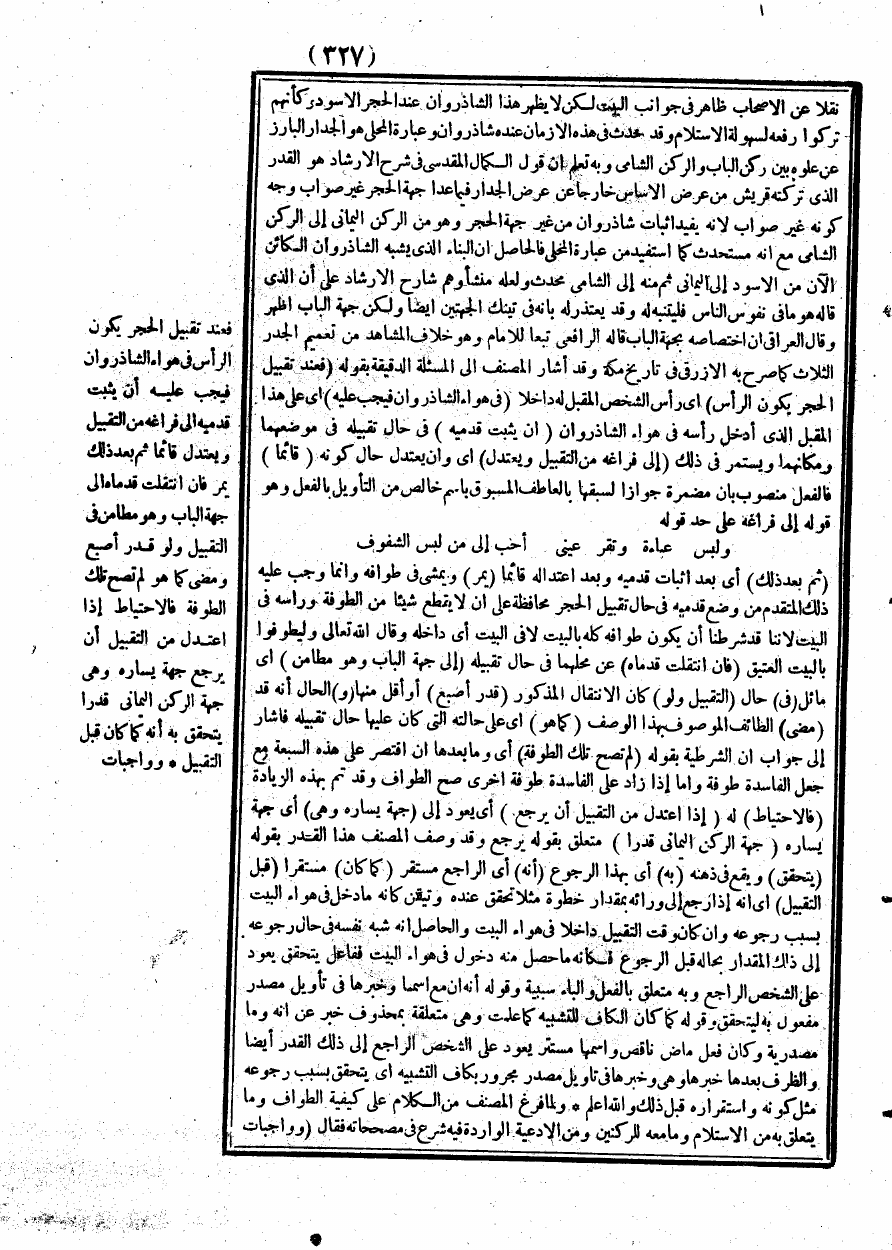 (٣٢٧)
نقلا عن الاصحاب ظاهر فى جوانب البيت لكن لا يظهر هذا الشاذروان عند الحجر الاسود وكأنهم
تركوا رفعه لسهولة الاستلام وقد حدث فى هذه الازمان عنده شاذروان وعبارة المحلى هو الجدار البارز
عن علوه بين ركن الباب والركن الشامى وبه تعلم ان قول الكمال المقدسى فى شرح الارشاد هو القدر
الذى تركته قريش من عرض الاساس خارجا عن عرض الجدار فيما عدا جهة الحجر غير صواب وجه
كونه غير صواب لانه يفيد اثبات شاذروان من غير جهة الحجر وهو من الركن اليمانى إلى الركن
الشامى مع انه مستحدث كما استفيد من عبارة المحلى فالحاصل ان البناء الذى يشبه الشاذروان الكائن
الآن من الاسود إلى اليمانى ثم منه إلى الشامى محدث ولعله منشأ وهم شارح الارشاد على أن الذى
قاله هو مافى نفوس الناس فليتنبه له وقد يعتذر له بانه فى تينك الجهتين ايضا ولكن جهة الباب اظهر
وقال العراقى ان اختصاصه بجهة الباب قاله الرافعى تبعا للامام وهو خلاف المشاهد من تعميم الجدر
الثلاث كما صرح به الازرقى فى تاريخ مكة وقد أشار المصنف الى المسئلة الدقيقة بقوله (فعند تقبيل
الحجر يكون الرأس) اى رأس الشخص المقبل له داخلا (فى هواء الشاذروان فيجب عليه) اى على هذا
المقبل الذى أدخل رأسه فى هواء الشاذروان (ان يثبت قدميه) فى حال تقبيله فى موضعهما
ومكانهما ويستمر فى ذلك (إلى فراغه من التقبيل ويعتدل) اى وان يعتدل حال كونه (قائما)
فالفعل منصوب بان مضمرة جوازا لسبقها بالعاطف المسبوق باسم خالص من التأويل بالفعل وهو
قوله إلى فراغه على حد قوله
ولبس عباءة وتقر عينى أحب إلى من لبس الشفوف
(ثم بعد ذلك) أى بعد اثبات قدميه وبعد اعتداله قائما (يمر) ويمشى فى طوافه وانما وجب عليه
ذلك المتقدم من وضع قدميه فى حال تقبيل الحجر محافظة على ان لا يقطع شيئا من الطوفة وراسه فى
البيت لاننا قد شرطنا أن يكون طوافه كله بالبيت لا فى البيت أى داخله وقال الله تعالى وليطوفوا
بالبيت العتيق (فان انتقلت قدماه) عن محلهما فى حال تقبيله (إلى جهة الباب وهو مطامن) اى
مائل (فى) حال (التقبيل ولو) كان الانتقال المذكور (قدر أصبع) أو أقل منها (و) الحال أنه قد
(مضى) الطائف الموصوف بهذا الوصف (كما هو) اى على حالته التى كان عليها حال تقبيله فاشار
إلى جواب ان الشرطية بقوله (لم تصح تلك الطوفة) أى وما بعدها ان اقتصر على هذه السبعة مع
جعل الفاسدة طوفة واما إذا زاد على الفاسدة طوفة اخرى صح الطواف وقد تم بهذه الزيادة
(فالاحتياط) له (إذا اعتدل من التقبيل أن يرجع) أى يعود إلى (جهة يساره وهى) أى جهة
يساره (جهة الركن اليمانى قدرا) متعلق بقوله يرجع وقد وصف المصنف هذا القدر بقوله
(يتحقق) ويقع فى ذهنه (به) أى بهذا الرجوع (أنه) أى الراجع مستقر (كما كان) مستقرا (قبل
التقبيل) اى انه إذا رجع إلى ورائه بمقدار خطوة مثلا تحقق عنده وتيقن كانه مادخل فى هواء البيت
بسبب رجوعه وان كان وقت التقبيل داخلا فى هواء البيت والحاصل انه شبه نفسه فى حال رجوعه
إلى ذاك المقدار بحاله قبل الرجوع فكانه ماحصل منه دخول فى هواء البيت ففاعل يتحقق يعود
على الشخص الراجع وبه متعلق بالفعل والباء سببية وقوله أنه ان مع اسمها وخبرها فى تأويل مصدر
مفعول به ليتحقق وقوله كما كان الكاف للتشبيه كما علمت وهى متعلقة بمحذوف خبر عن انه وما
مصدرية وكان فعل ماض ناقص واسمها مستتر يعود على الشخص الراجع إلى ذلك القدر أيضا
والظرف بعدها خبرها وهى وخبرها فى تاويل مصدر مجرور بكاف التشبيه اى يتحقق بسبب رجوعه
مثل كونه واستقراره قبل ذلك والله اعلم * ولما فرغ المصنف من الكلام على كيفية الطواف وما
يتعلق به من الاستلام ومامعه للركنين ومن الادعية الواردة فيه شرع فى مصححاته فقال (وواجبات
فعند تقبيل الحجر يكون
الرأس فى هواء الشاذروان
فيجب عليه أن يثبت
قدميه الى فراغه من التقبيل
ويعتدل قائما ثم بعد ذلك
يمر فان انتقلت قدماه الى
جهة الباب وهو مطامن فى
التقبيل ولو قدر أصبع
ومضى كما هو لم تصح تلك
الطوفة فالاحتياط إذا
اعتدل من التقبيل أن
يرجع جهة يساره وهى
جهة الركن اليمانى قدرا
يتحقق به أنه كما كان قبل
التقبيل * وواجبات